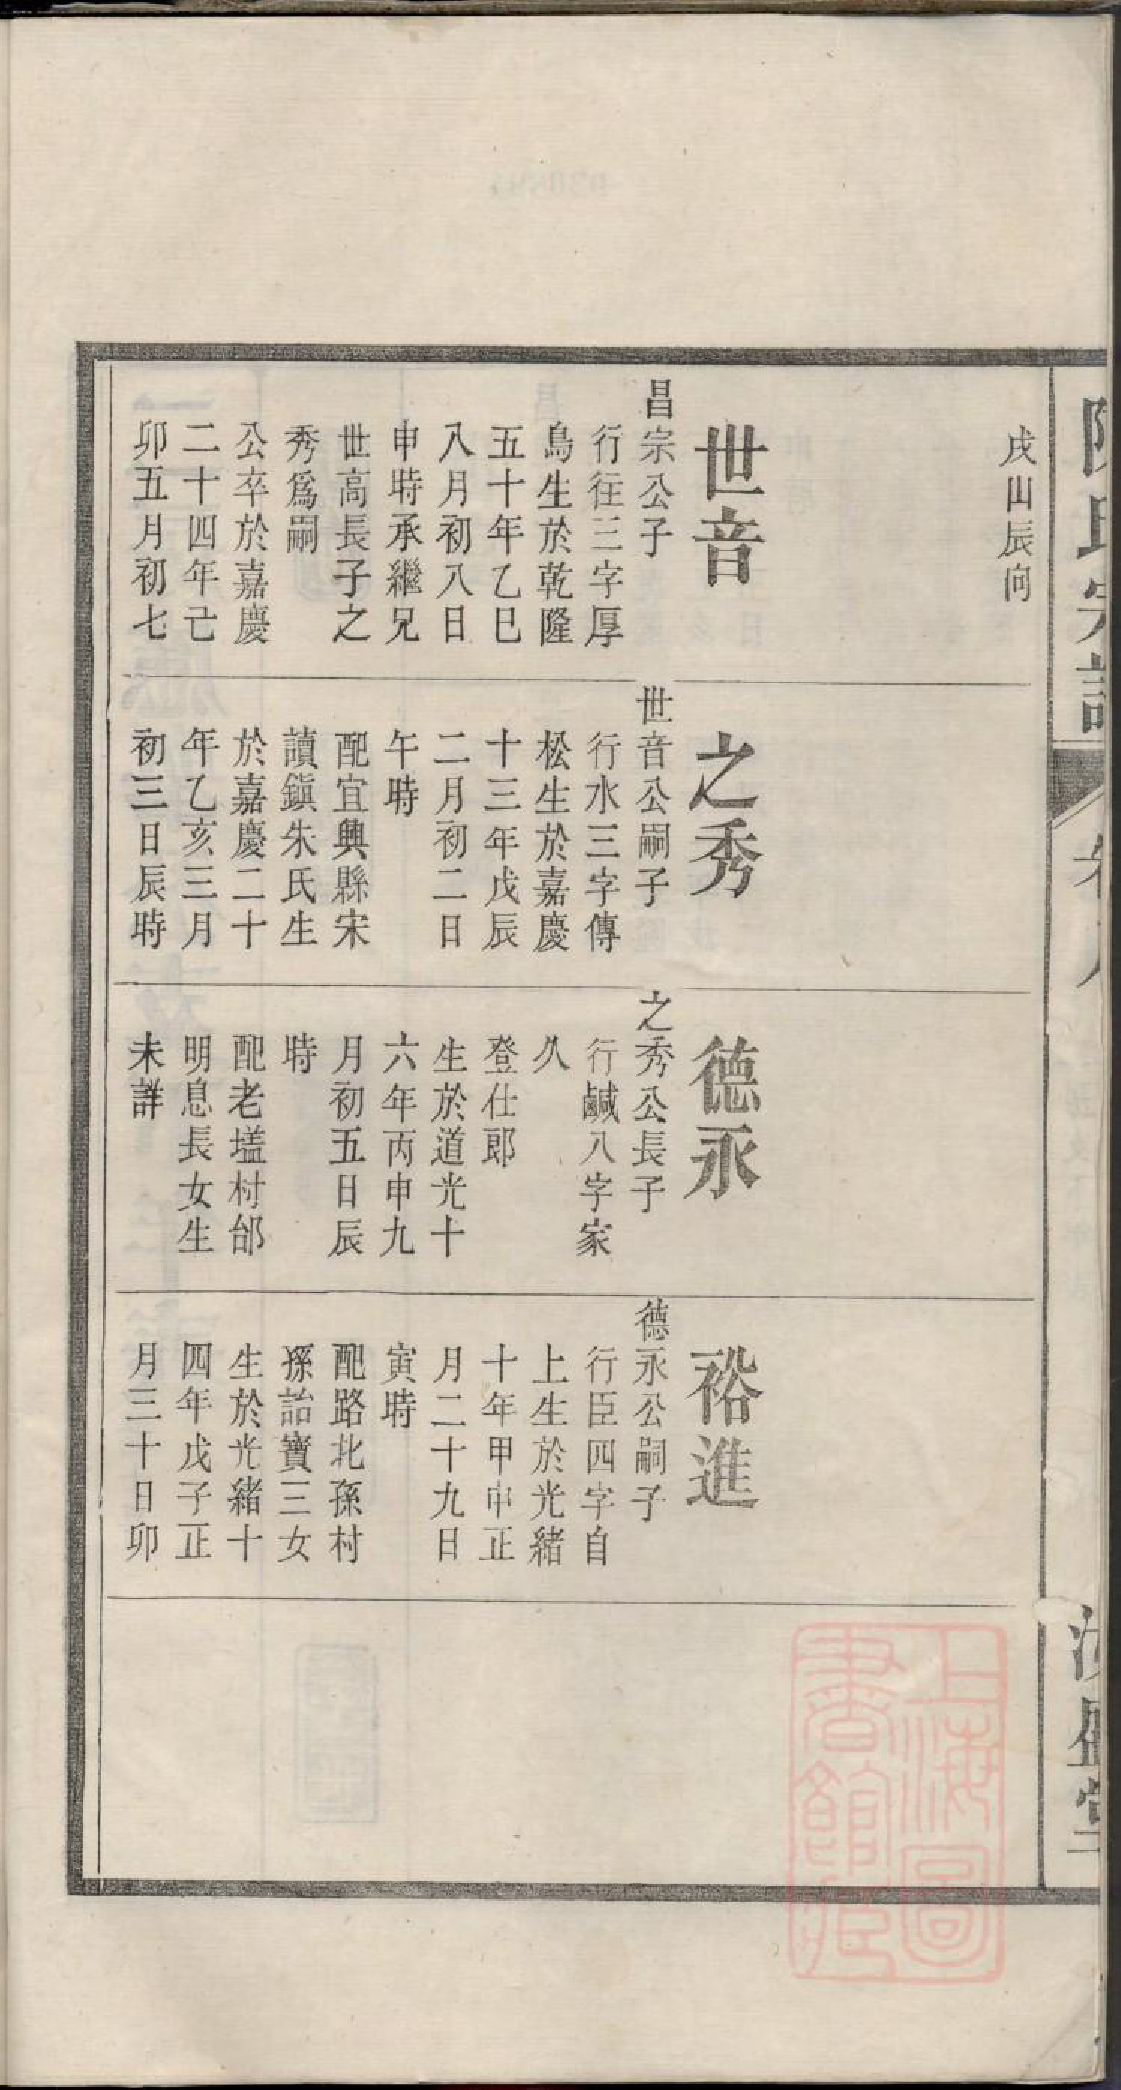 陳氏宗譜
卷八
戌山辰向
世音
昌宗公子
行徃三字厚
鳥生於乾隆
五十年乙巳
八月初八日
申時承繼兄
世高長子之
秀爲嗣
公卒於嘉慶
二十四年己
卯五月初七
之秀
世音公嗣子
行水三字傳
松生於嘉慶
十三年戊辰
二月初二日
午時
配宜興縣宋
讀鎭朱氏生
於嘉慶二十
年乙亥三月
初三日辰時
德永
之秀公長子
行鹹八字家
久
登仕郎
生於道光十
六年丙申九
月初五日辰
時
配老壒村邰
明息長女生
未詳
裕進
德永公嗣子
行臣四字自
上生於光緒
十年甲申正
月二十九日
寅時
配路北孫村
孫詒寶三女
生於光緒十
四年戊子正
月三十日卯
上海圖
書館藏